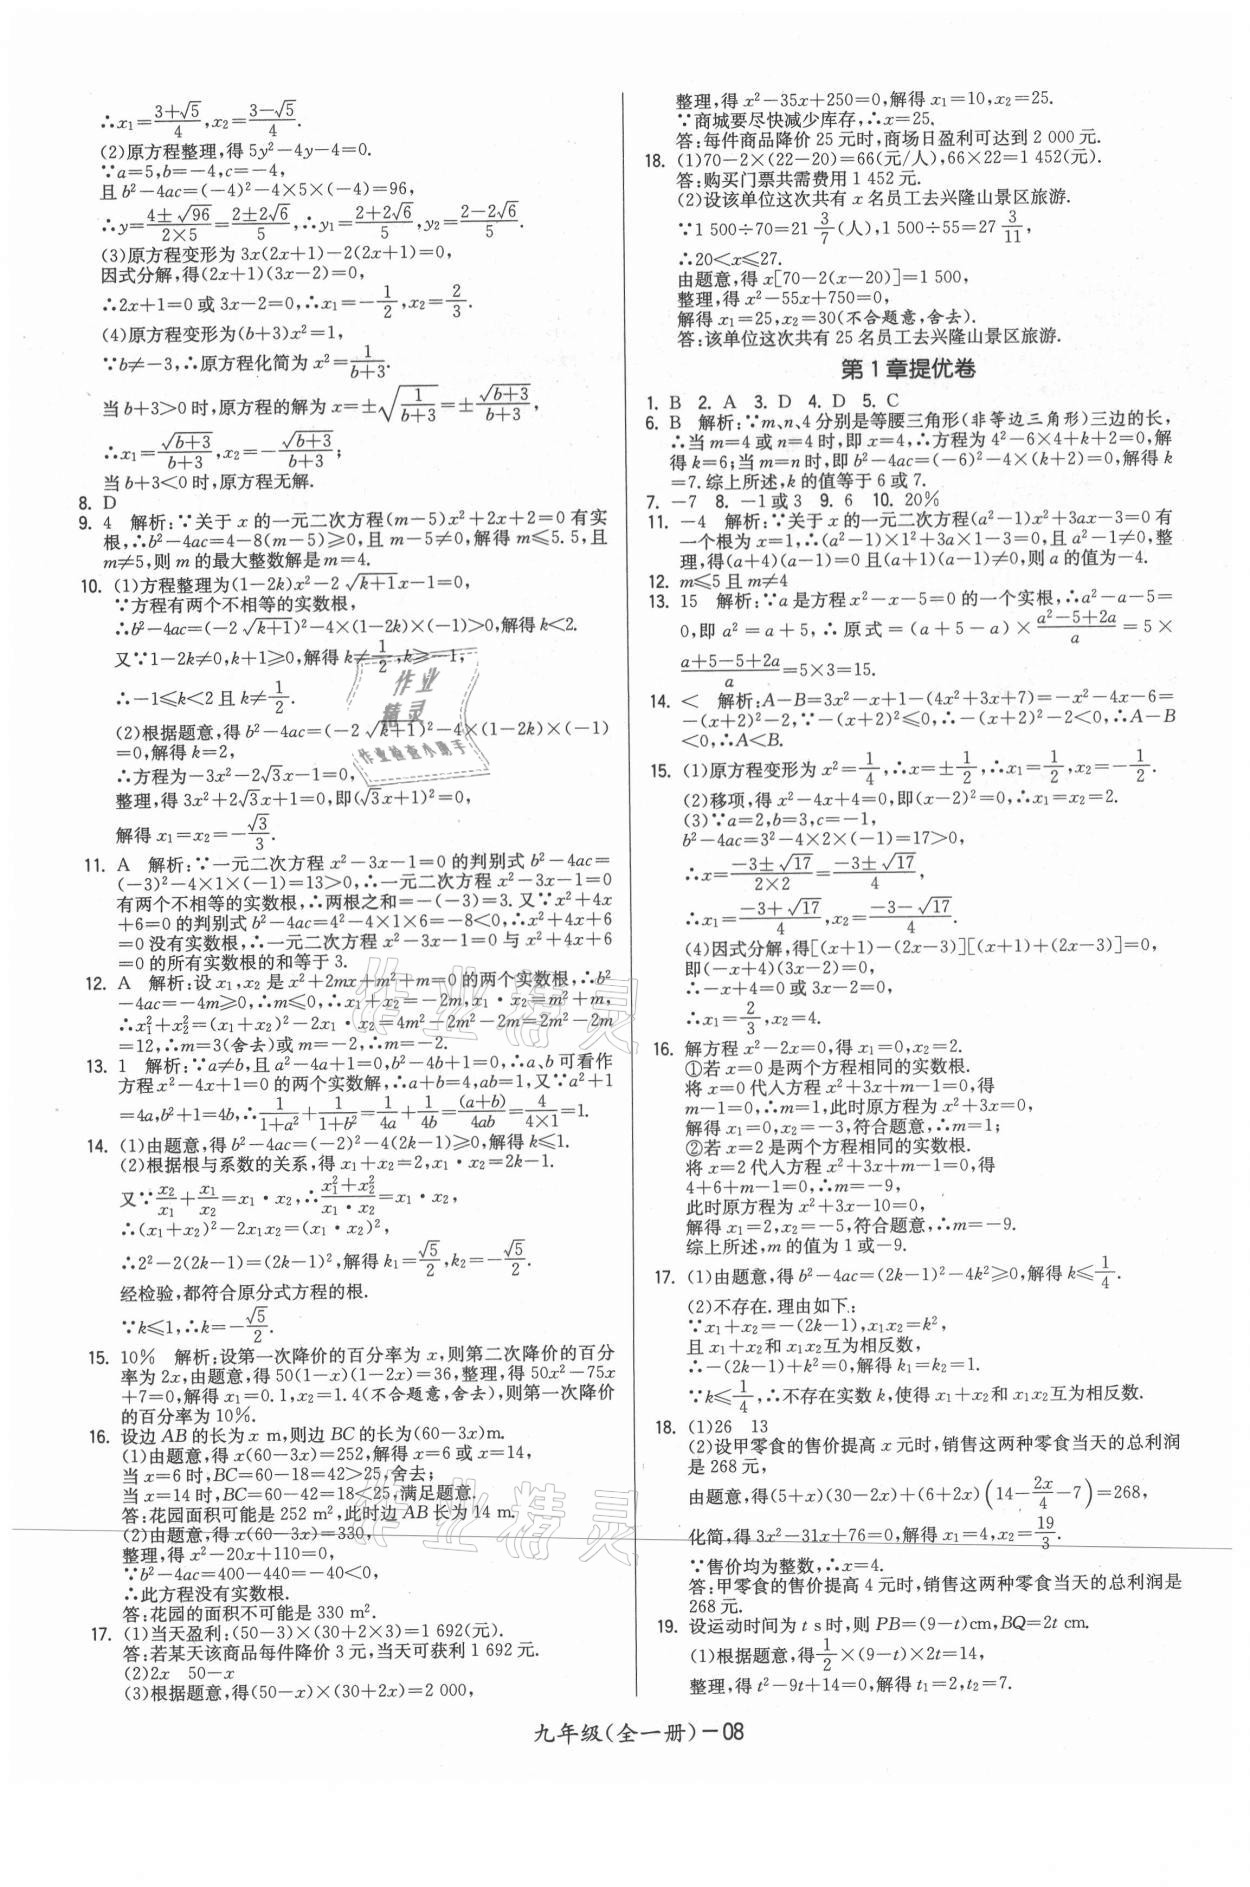 ∴x₁=(3+√5)/4,x₂=(3-√5)/4.
(2)原方程整理,得 5y²-4y-4=0.
∵a=5,b=-4,c=-4,
且 b²-4ac=(-4)²-4×5×(-4)=96,
∴y=(4±√96)/(2×5)=(2±2√6)/5,∴y₁=(2+2√6)/5,y₂=(2-2√6)/5.
(3)原方程变形为 3x(2x+1)-2(2x+1)=0,
因式分解,得(2x+1)(3x-2)=0,
∴2x+1=0 或 3x-2=0,∴x₁=-1/2,x₂=2/3.
(4)原方程变形为(b+3)x²=1,
∵b≠-3,∴原方程化简为 x²=1/(b+3).
当 b+3>0 时,原方程的解为 x=±√(1/(b+3))=±√(b+3)/(b+3),
∴x₁=√(b+3)/(b+3),x₂=-√(b+3)/(b+3);
当 b+3<0 时,原方程无解.
8. D
9. 4 解析:∵关于 x 的一元二次方程(m-5)x²+2x+2=0 有实
根,∴b²-4ac=4-8(m-5)≥0,且 m-5≠0,解得 m≤5.5,且
m≠5,则 m 的最大整数解是 m=4.
10. (1)方程整理为(1-2k)x²-2√(k+1)x-1=0,
∵方程有两个不相等的实数根,
∴b²-4ac=(-2√(k+1))²-4×(1-2k)×(-1)>0,解得 k<2.
又∵1-2k≠0,k+1≥0,解得 k≠1/2,k≥-1,
∴-1≤k<2 且 k≠1/2.
(2)根据题意,得 b²-4ac=(-2√(k+1))²-4×(1-2k)×(-1)
=0,解得 k=2,
∴方程为-3x²-2√3x-1=0,
整理,得 3x²+2√3x+1=0,即(√3x+1)²=0,
解得 x₁=x₂=-√3/3.
11. A 解析:∵一元二次方程 x²-3x-1=0 的判别式 b²-4ac=
(-3)²-4×1×(-1)=13>0,∴一元二次方程 x²-3x-1=0
有两个不相等的实数根,∴两根之和=-(-3)=3. 又∵x²+4x
+6=0 的判别式 b²-4ac=4²-4×1×6=-8<0,∴x²+4x+6
=0 没有实数根,∴一元二次方程 x²-3x-1=0 与 x²+4x+6
=0 的所有实数根的和等于 3.
12. A 解析:设 x₁,x₂ 是 x²+2mx+m²+m=0 的两个实数根,∴b²
-4ac=-4m≥0,∴m≤0,∴x₁+x₂=-2m,x₁·x₂=m²+m,
∴x₁²+x₂²=(x₁+x₂)²-2x₁·x₂=4m²-2m²-2m=2m²-2m
=12,∴m=3(舍去)或 m=-2,∴m=-2.
13. 1 解析:∵a≠b,且 a²-4a+1=0,b²-4b+1=0,∴a、b 可看作
方程 x²-4x+1=0 的两个实数解,∴a+b=4,ab=1,又∵a²+1
=4a,b²+1=4b,∴1/(1+a²)+1/(1+b²)=1/4a+1/4b=(a+b)/4ab=4/(4×1)=1.
14. (1)由题意,得 b²-4ac=(-2)²-4(2k-1)≥0,解得 k≤1.
(2)根据根与系数的关系,得 x₁+x₂=2,x₁·x₂=2k-1.
又∵x₂/x₁+x₁/x₂=x₁·x₂,∴(x₁²+x₂²)/(x₁·x₂)=x₁·x₂,
∴(x₁+x₂)²-2x₁x₂=(x₁·x₂)²,
∴2²-2(2k-1)=(2k-1)²,解得 k₁=√5/2,k₂=-√5/2.
经检验,都符合原分式方程的根.
∵k≤1,∴k=-√5/2.
15. 10% 解析:设第一次降价的百分率为 x,则第二次降价的百分
率为 2x,由题意,得 50(1-x)(1-2x)=36,整理,得 50x²-75x
+7=0,解得 x₁=0.1,x₂=1.4(不合题意,舍去),则第一次降价
的百分率为 10%.
16. 设边 AB 的长为 x m,则边 BC 的长为(60-3x)m.
(1)由题意,得 x(60-3x)=252,解得 x=6 或 x=14,
当 x=6 时,BC=60-18=42>25,舍去;
当 x=14 时,BC=60-42=18<25,满足题意.
答:花园面积可能是 252 m²,此时边 AB 长为 14 m.
(2)由题意,得 x(60-3x)=330,
整理,得 x²-20x+110=0,
∵b²-4ac=400-440=-40<0,
∴此方程没有实数根.
答:花园的面积不可能是 330 m².
17. (1)当天盈利:(50-3)×(30+2×3)=1 692(元).
答:若某天该商品每件降价 3 元,当天可获利 1 692 元.
(2)2x 50-x
(3)根据题意,得(50-x)×(30+2x)=2 000,
整理,得 x²-35x+250=0,解得 x₁=10,x₂=25.
∵商城要尽快减少库存,∴x=25.
答:每件商品降价 25 元时,商场日盈利可达到 2 000 元.
18. (1)70-2×(22-20)=66(元/人),66×22=1 452(元).
答:购买门票共需费用 1 452 元.
(2)设该单位这次共有 x 名员工去兴隆山景区旅游.
∵1 500÷70=21 3/7(人),1 500÷55=27 3/11,
∴20<x≤27.
由题意,得 x[70-2(x-20)]=1 500,
整理,得 x²-55x+750=0,
解得 x₁=25,x₂=30(不合题意,舍去).
答:该单位这次共有 25 名员工去兴隆山景区旅游.
第 1 章提优卷
1. B 2. A 3. D 4. D 5. C
6. B 解析:∵m、n、4 分别是等腰三角形(非等边三角形)三边的长,
∴当 m=4 或 n=4 时,即 x=4,∴方程为 4²-6×4+k+2=0,解
得 k=6;当 m=n 时,即 b²-4ac=(-6)²-4×(k+2)=0,解得 k
=7. 综上所述,k 的值等于 6 或 7.
7. -7 8. -1 或 3 9. 6 10. 20%
11. -4 解析:∵关于 x 的一元二次方程(a²-1)x²+3ax-3=0 有
一个根为 x=1,∴(a²-1)×1²+3a×1-3=0,且 a²-1≠0,整
理,得(a+4)(a-1)=0 且(a+1)(a-1)≠0,则 a 的值为-4.
12. m≤5 且 m≠4
13. 15 解析:∵a 是方程 x²-x-5=0 的一个实根,∴a²-a-5=
0,即 a²=a+5,∴原式=(a+5-a)×(a²-5+2a)/a=5×
(a+5-5+2a)/a=5×3=15.
14. < 解析:A-B=3x²-x+1-(4x²+3x+7)=-x²-4x-6=
-(x+2)²-2,∵-(x+2)²≤0,∴-(x+2)²-2<0,∴A-B
<0,∴A<B.
15. (1)原方程变形为 x²=1/4,∴x=±1/2,∴x₁=1/2,x₂=-1/2.
(2)移项,得 x²-4x+4=0,即(x-2)²=0,∴x₁=x₂=2.
(3)∵a=2,b=3,c=-1,
b²-4ac=3²-4×2×(-1)=17>0,
∴x=(-3±√17)/(2×2)=(-3±√17)/4,
∴x₁=(-3+√17)/4,x₂=(-3-√17)/4.
(4)因式分解,得[(x+1)-(2x-3)][(x+1)+(2x-3)]=0,
即(-x+4)(3x-2)=0,
∴-x+4=0 或 3x-2=0,
∴x₁=2/3,x₂=4.
16. 解方程 x²-2x=0,得 x₁=0,x₂=2.
①若 x=0 是两个方程相同的实数根.
将 x=0 代入方程 x²+3x+m-1=0,得
m-1=0,∴m=1,此时原方程为 x²+3x=0,
解得 x₁=0,x₂=-3,符合题意,∴m=1;
②若 x=2 是两个方程相同的实数根.
将 x=2 代入方程 x²+3x+m-1=0,得
4+6+m-1=0,∴m=-9,
此时原方程为 x²+3x-10=0,
解得 x₁=2,x₂=-5,符合题意,∴m=-9.
综上所述,m 的值为 1 或-9.
17. (1)由题意,得 b²-4ac=(2k-1)²-4k²≥0,解得 k≤1/4.
(2)不存在. 理由如下:
∵x₁+x₂=-(2k-1),x₁x₂=k²,
且 x₁+x₂和 x₁x₂互为相反数,
∴-(2k-1)+k²=0,解得 k₁=k₂=1.
∵k≤1/4,∴不存在实数 k,使得 x₁+x₂和 x₁x₂互为相反数.
18. (1)26 13
(2)设甲零食的售价提高 x 元时,销售这两种零食当天的总利润
是 268 元,
由题意,得(5+x)(30-2x)+(6+2x)(14-2x/4-7)=268,
化简,得 3x²-31x+76=0,解得 x₁=4,x₂=19/3.
∵售价均为整数,∴x=4.
答:甲零食的售价提高 4 元时,销售这两种零食当天的总利润是
268 元.
19. 设运动时间为 t s时,则 PB=(9-t)cm,BQ=2t cm.
(1)根据题意,得1/2×(9-t)×2t=14,
整理,得 t²-9t+14=0,解得 t₁=2,t₂=7.
九年级(全一册)-08
作业
精灵
作业检查小助手
作业精灵
作业精灵